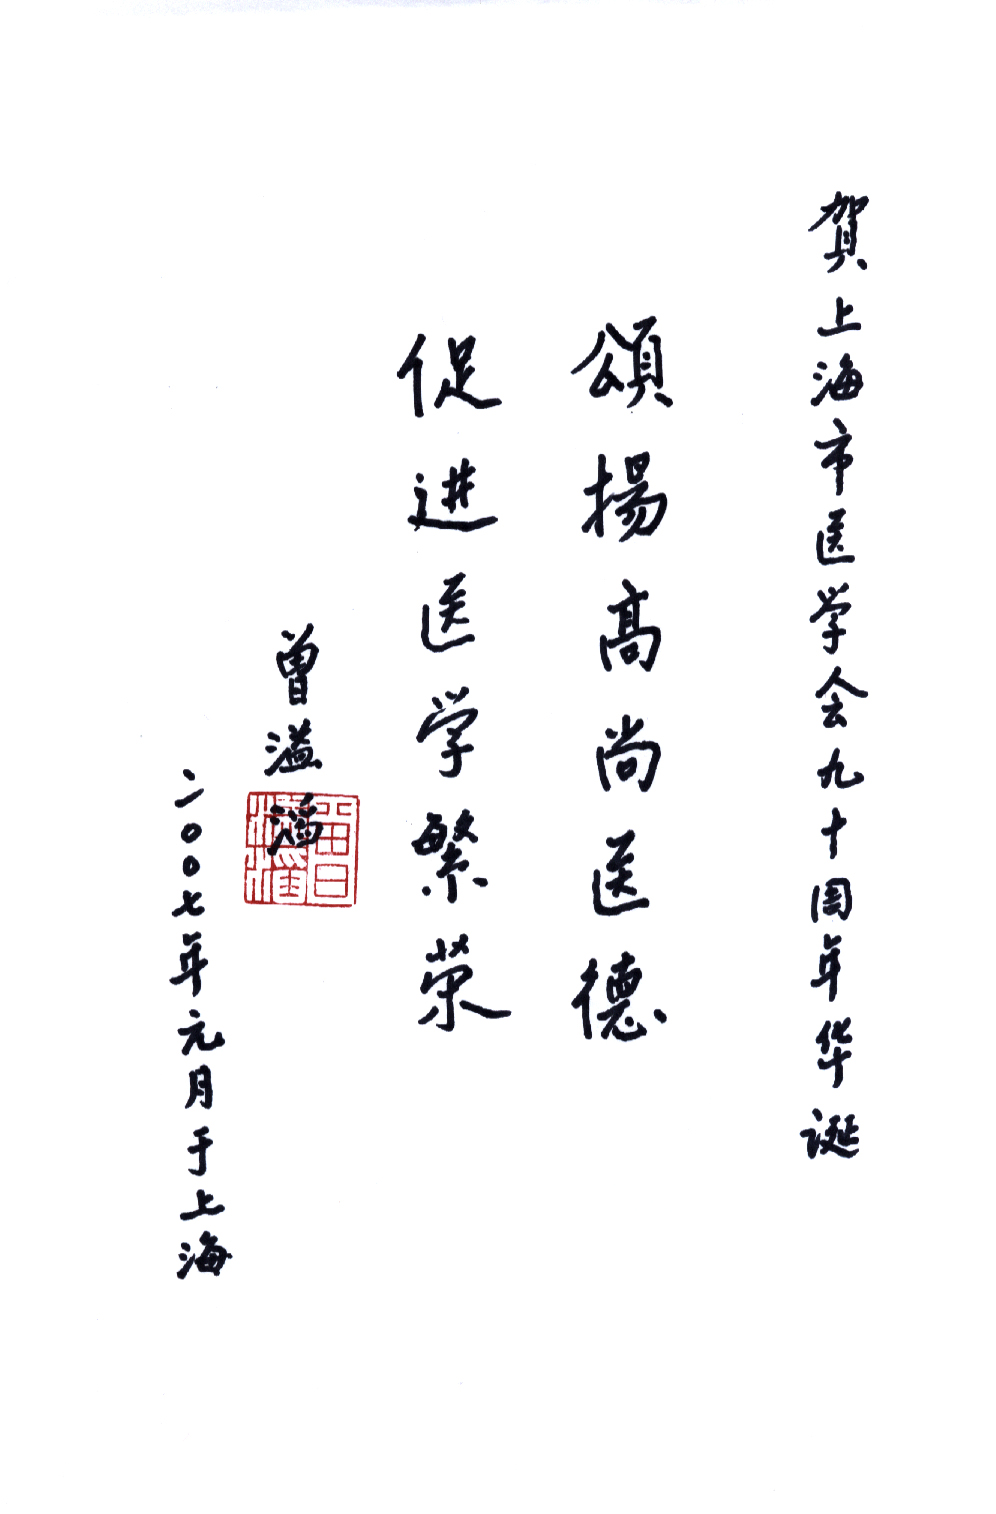 賀上海市医学会九十周年华诞
頌揚高尚医德
促进医学繁荣
曾溢滔
二00七年元月于上海